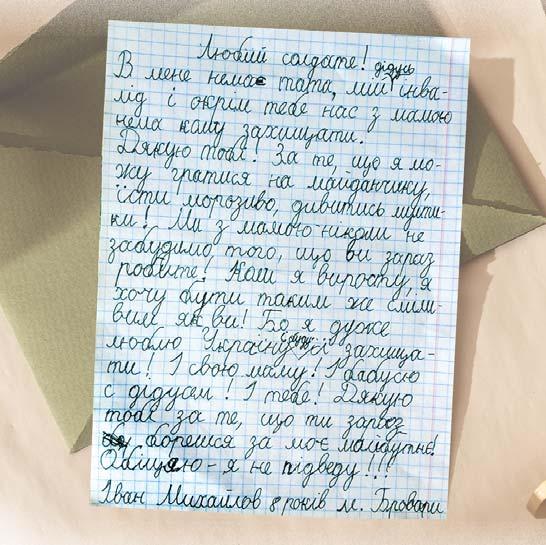 Любий солдате!
В мене немає тата, мій дідусь інва-
лід і окрім тебе нас з мамою
нема кому захищати.
Дякую тобі! За те, що я мо-
жу гратися на майданчику,
їсти морозиво, дивитись мульти-
ки! Ми з мамою ніколи не
забудимо того, що ви зараз
робите! Коли я виросту, я
хочу бути таким же сміли-
вим як ви! Бо я дуже
люблю Україну її захища-
ти! І свою маму! І бабусю
с дідусем! І тебе! Дякую
тобі за те, що ти зараз
борешся за моє майбутнє!
Обіцяю - я не підведу!!!
Іван Михайлов 8 років м. Бровари